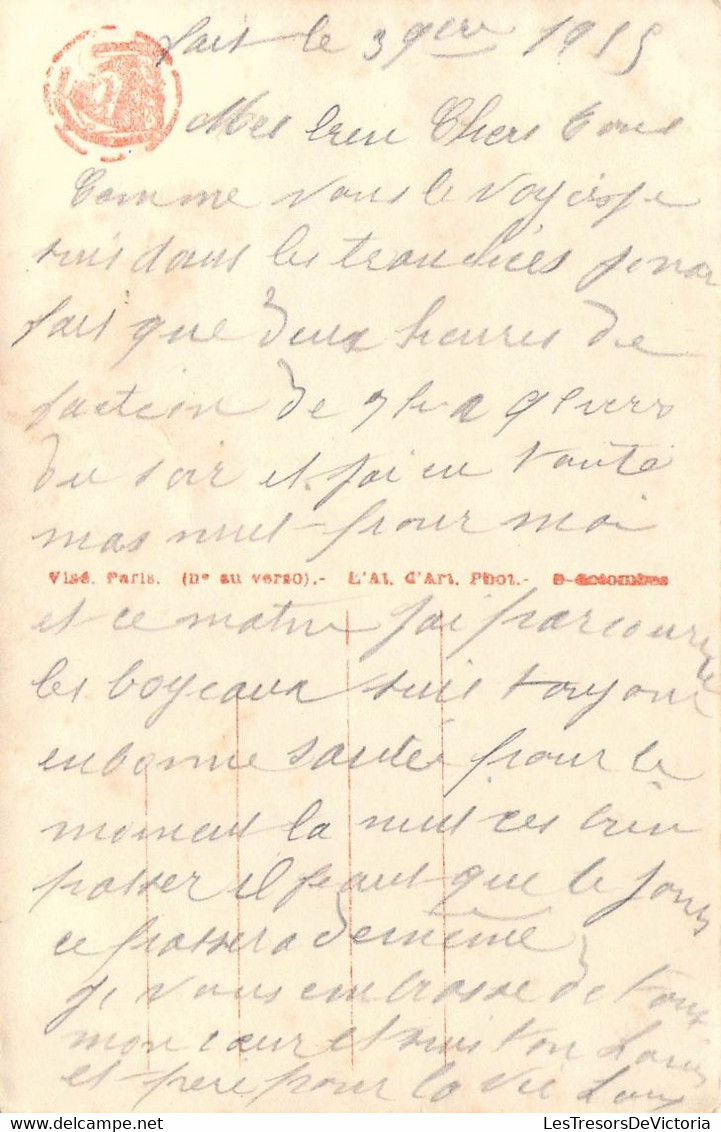 fait le 3 9bre 1915
Mes bien Chers tous
Comme vous le voyez je
suis dans les tranchées je nai
fait que deux heures de
faction de 7 h a 9 heures
du soir et jai eu toute
mas nuit pour moi
Visé. Paris. (No au verso).- L'At. d'Art. Phot.-
et ce matin jai parcouru
les boyeaux suis toujour
en bonne santée pour le
moment la nuit ces bien
passer il faut que le jour
ce passera de même
je vous embrasse de tout
mon cœur et suis ton
et pere pour la vie
LesTresorsDeVictoria.com